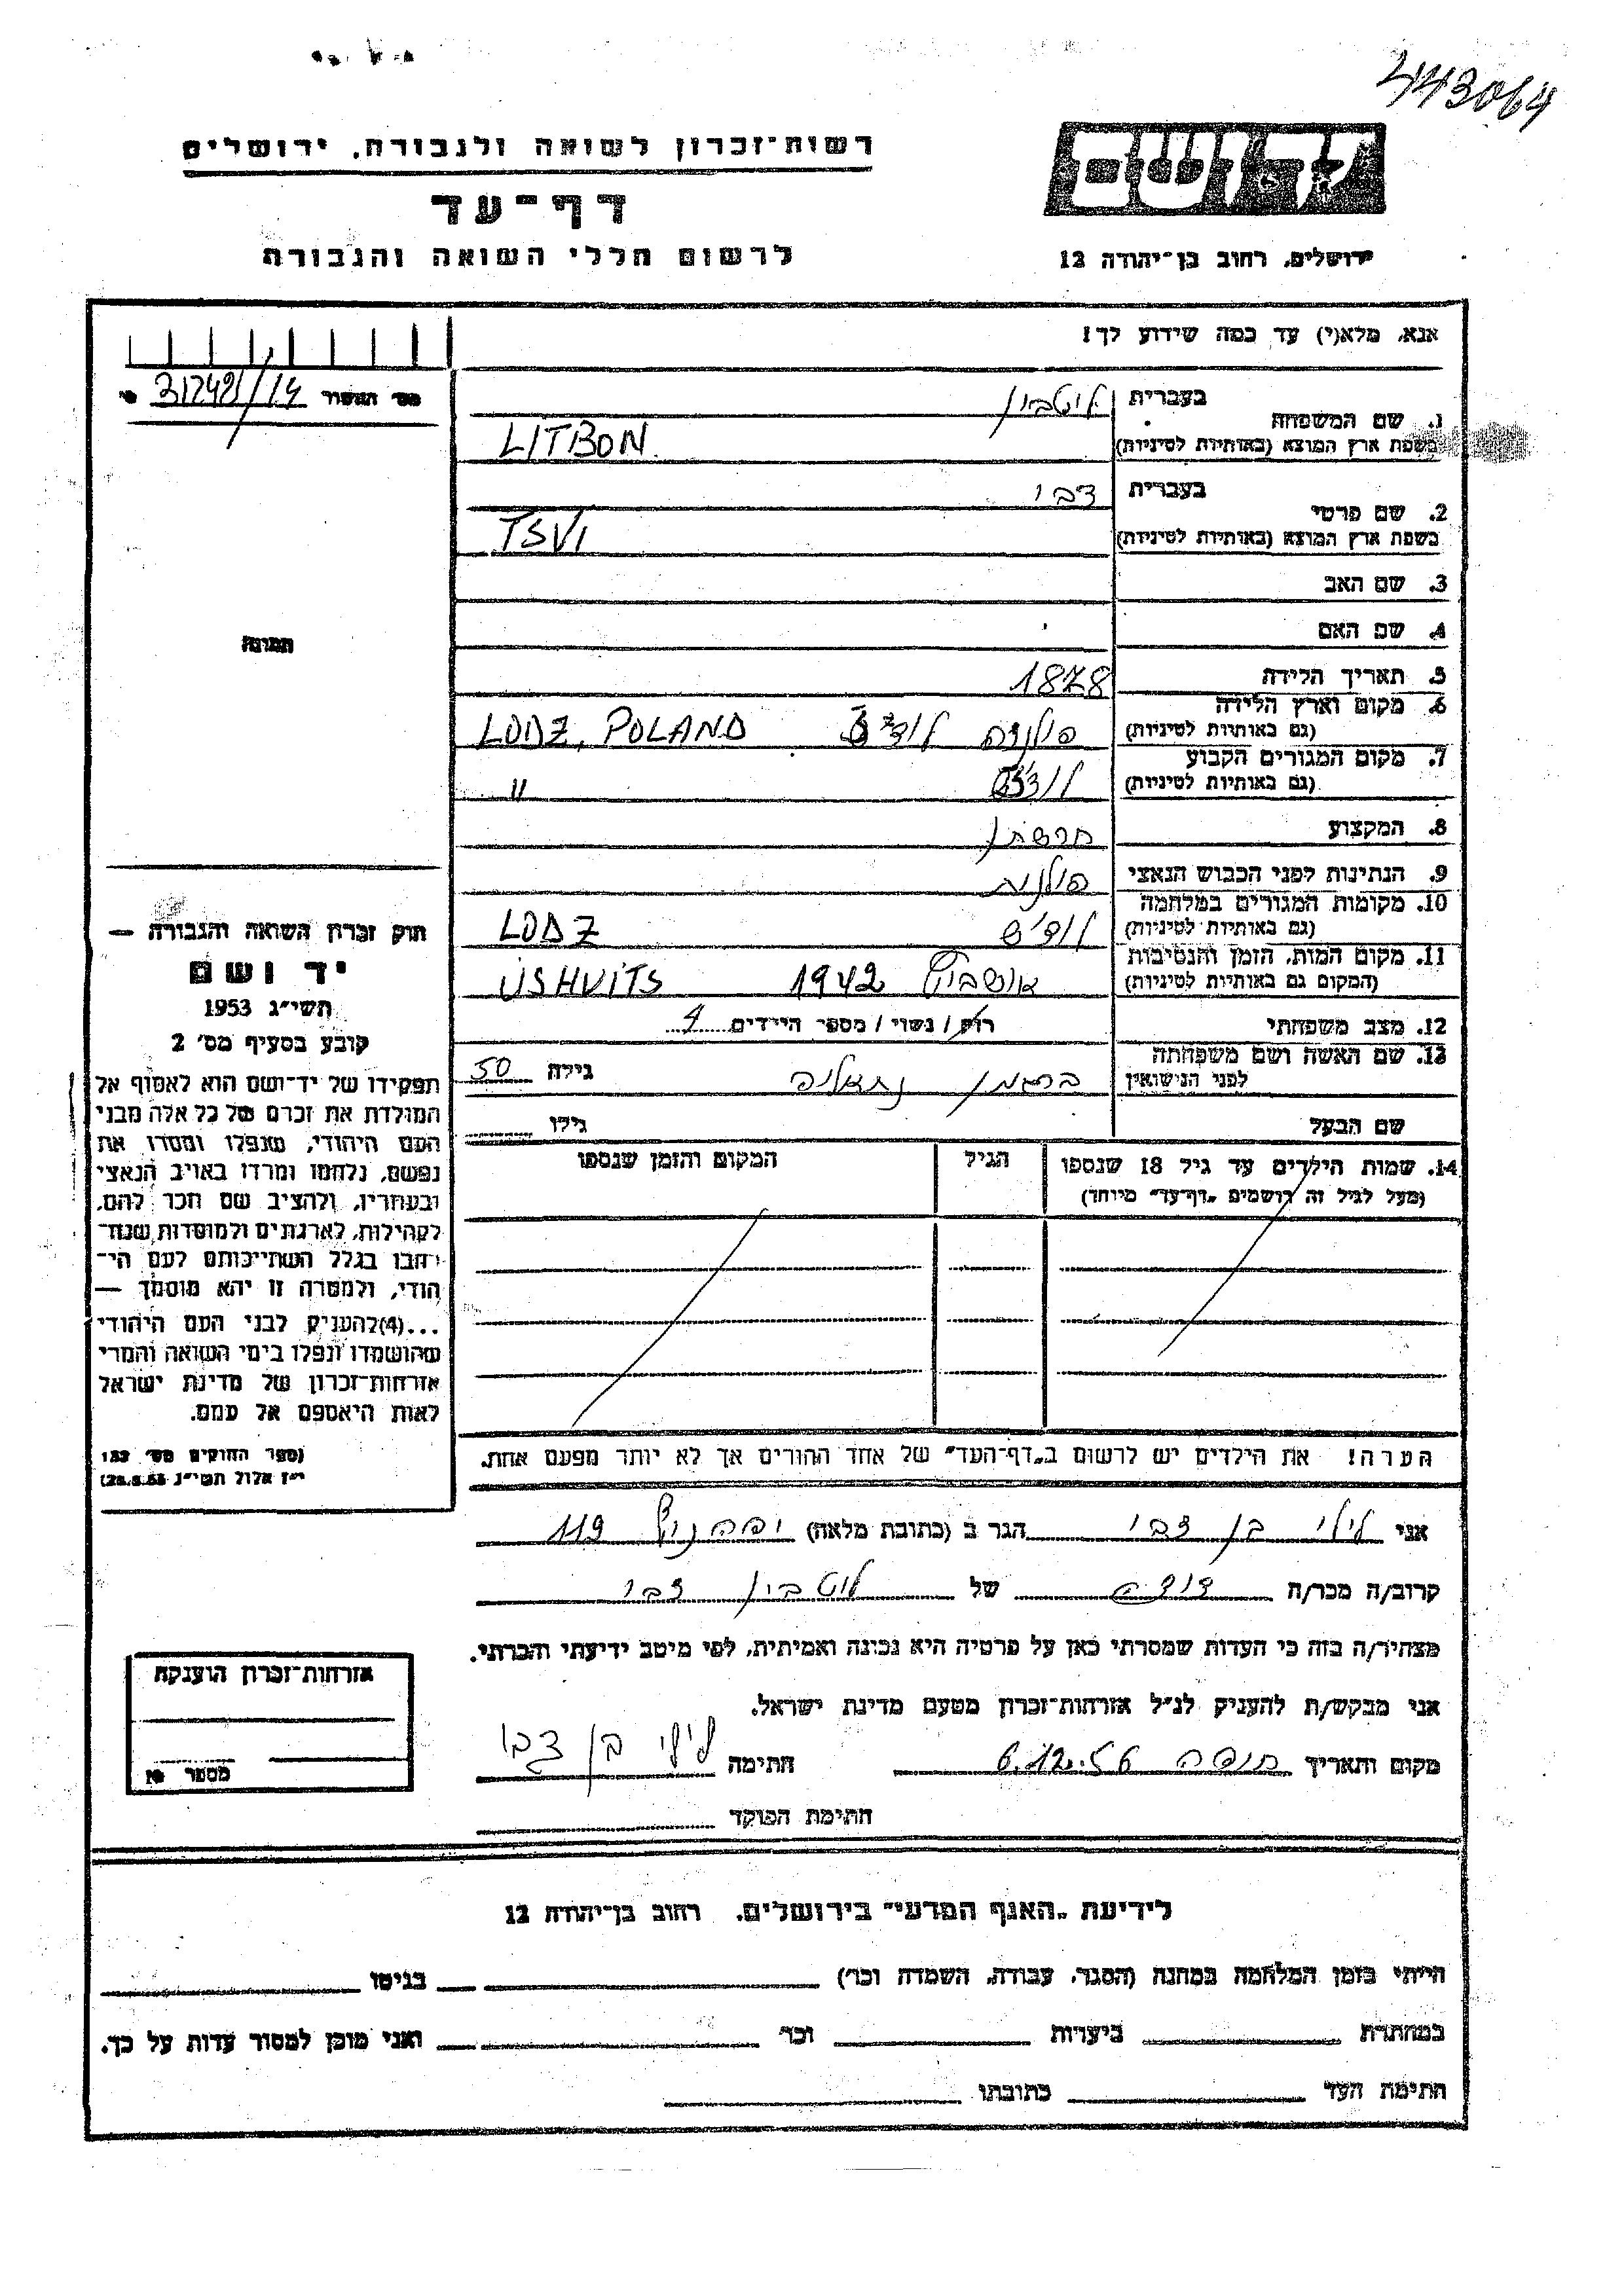 443064
רשות־זכרון לשואה ולגבורה, ירושלים
דף־עד
לרשום חללי השואה והגבורה
יד ושם
ירושלים, רחוב בן־יהודה 12
אנא, מלא(י) עד כמה שידוע לך!
1. שם המשפחה בעברית ליטבון
בשפת ארץ המוצא (באותיות לטיניות) LITBON
2. שם פרטי בעברית צבי
בשפת ארץ המוצא (באותיות לטיניות) TSVI
3. שם האב
4. שם האם
5. תאריך הלידה 1878
6. מקום וארץ הלידה (גם באותיות לטיניות) פולניה LODZ, POLAND
7. מקום המגורים הקבוע (גם באותיות לטיניות) "
8. המקצוע חרשתן
9. הנתינות לפני הכבוש הנאצי פולנית
10. מקומות המגורים במלחמה (גם באותיות לטיניות) LODZ
11. מקום המות, הזמן והנסיבות (המקום גם באותיות לטיניות) אושביץ 1942 USHVITS
12. מצב משפחתי רוק / נשוי / מספר הילדים 4
13. שם האשה ושם משפחתה לפני הנישואין ברגמן נתאליה גילה 50
שם הבעל גילו
14. שמות הילדים עד גיל 18 שנספו (מעל לגיל זה רושמים „דף־עד" מיוחד) הגיל המקום והזמן שנספו
הערה! את הילדים יש לרשום ב„דף־העד" של אחד ההורים אך לא יותר מפעם אחת.
תמונה
חוק זכרון השואה והגבורה —
יד ושם
תשי"ג 1953
קובע בסעיף מס' 2
תפקידו של יד־ושם הוא לאסוף אל
המולדת את זכרם של כל אלה מבני
העם היהודי, שנפלו ומסרו את
נפשם, נלחמו ומרדו באויב הנאצי
ובעוזריו, ולהציב שם וזכר להם,
לקהילות, לארגונים ולמוסדות שנח־
רבו בגלל השתייכותם לעם הי־
הודי, ולמטרה זו יהא מוסמך —
...(4)להעניק לבני העם היהודי
שהושמדו ונפלו בימי השואה והמרי
אזרחות־זכרון של מדינת ישראל
לאות היאספם אל עמם.
(ספר החוקים מס' 132
י"ז אלול תשי"ג 28.8.53)
אני לילי בן צבי הגר ב (כתובת מלאה) 119
קרוב/ה מכר/ה דודה של ליטבון צבי
מצהיר/ה בזה כי העדות שמסרתי כאן על פרטיה היא נכונה ואמיתית, לפי מיטב ידיעתי והכרתי.
אני מבקש/ת להעניק לנ"ל אזרחות־זכרון מטעם מדינת ישראל.
מקום ותאריך חיפה 6.12.56 חתימה לילי בן צבי
חתימת הפוקד
אזרחות־זכרון הוענקה
מספר
לידיעת „האגף המדעי" בירושלים, רחוב בן־יהודה 12
הייתי בזמן המלחמה במחנה (הסגר, עבודה, השמדה וכו') בגיטו
במחתרת ביערות וכו' ואני מוכן למסור עדות על כך.
חתימת העד כתובתו